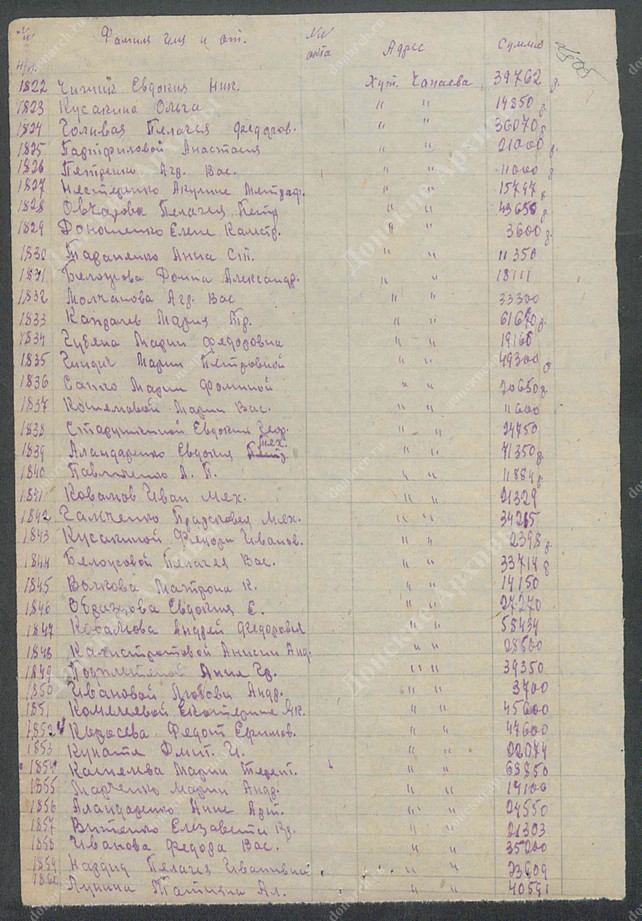 № п/п. Фамилия имя и от. №№ акта Адрес Сумма
1822 Чиний Евдокия Ник. Хут. Чапаева 39762 д.
1823 Кусакина Ольга " " 14850 д.
1824 Головая Пелагея Федоров. " " 36070 д.
1825 Парфиловой Анастасия " " 21000 д.
1826 Петренко Агр. Вас. " " 11000 д.
1827 Нестеренко Акулине Митроф. " " 15797 д.
1828 Овчарова Пелагея Петр " " 43650 д.
1829 Доношенко Елене Калистр. " " 3600 д.
1830 Мараненко Анна Ст. " " 11350
1831 Белоусова Фоина Александр. " " 18111
1832 Молчанова Агр. Вас " " 33300
1833 Мария Тр. " " 61670 д.
1834 Мария Федоровна " " 19160
1835 Марии Петровной " " 49300
1836 Сапко Марии Фоминой " " 20650 д.
1837 Марии Вас. " " 11600
1838 Евдокии Геор. " " 24750
1839 Аландаренко Евдокия Мих. " " 41350 д.
1840 Павличенко А. П. " " 11884 д.
1841 Ковалов Иван Мих. " " 21329
1842 Галченко Прасковея Мих. " " 34265
1843 Кусакиной Федоры Иванов. " " 2398 д.
1844 Белоусовой Пелагея Вас. " " 33714 д.
1845 Волкова Матрона К. " " 14150
1846 Образцова Евдокия Е. " " 27270
1847 Ковалева Андрей Федоровея " " 58434
1848 Калистратовой Анисии Анд. " " 28500
1849 Анна Гр. " " 39350
1850 Ивановой Любови Андр. " " 3700
1851 Екатерине Як. " " 45600
1852 Федот Ефимов. " " 47600
1853 Купатя Дмит. И. " " 22074
1854 Марии Терент. " " 68850
1855 Марченко Марии Андр. " " 19100
1856 Аландаренко Анне Арт. " " 24550
1857 Витенко Елизавети Гр. " " 21303
1858 Иванова Федора Вас. " " 35200
1859 Пелагея Ивановна " " 23609
1860 Лунина Татьяна Ал. " " 40591